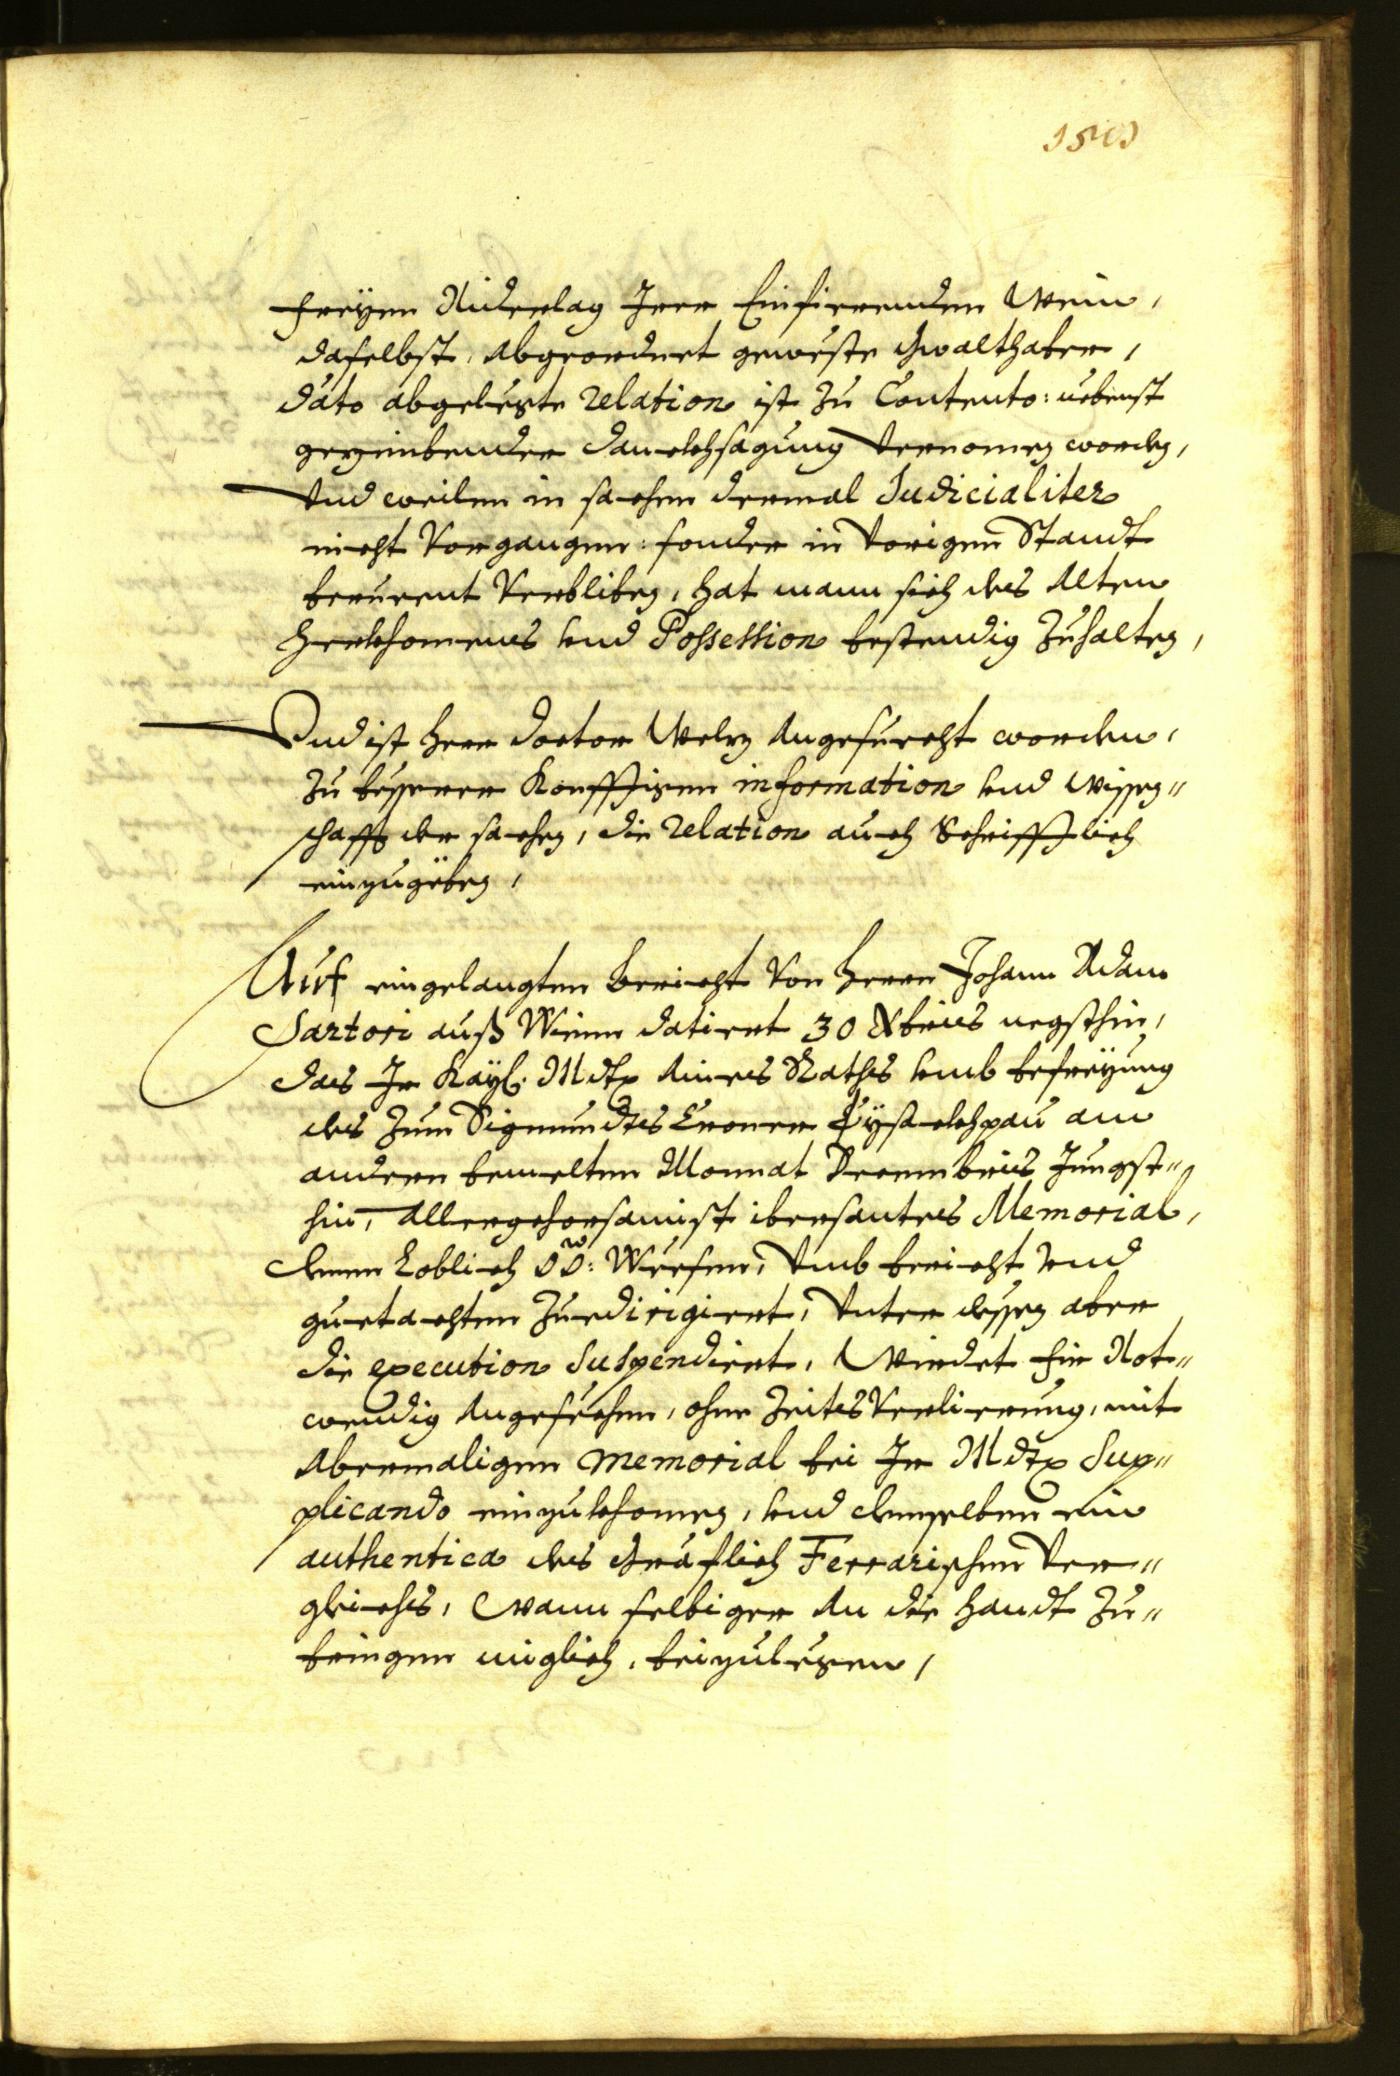 freÿen Niderlag Irer Einfierenden Wein,
daselbst, abgeordnet geweste Gwalthaber,
dato abgelegte relation ist zu Contento: nebenst
gezimbender danckhsagung vernomen worden,
Und weilen in sachen dermal Judicialiter
nicht vorgangen: sonder in vorigen Standt
berurent verbliben, hat mann sich des Alten
herkhomens und Possession bestendig zuhalten,
Und ist herr doctor Welz angesuecht worden,
zu besserer khonfftigen information und wissen"
schafft der sachen, die relation auch Schrifftlich
einzugeben,
Auf eingelangten bericht von herrn Johann Adam
Sartori auß Wienn datiert 30 Xbris negsthin,
das Ir Kaÿs: Mdt Aines Raths umb befreÿung
des zum Sigmundts Cronen Eÿsackhpau am
andern bemelten Monnat Decembris Jungst"
hin, allergehorsamist ibersantes Memorial,
denen Loblich OÖ: Wesen, umb bericht und
guetachten zuedirigiert, unter dessen aber
die execution Suspendiert, Wirdet fir Not"
wendig angesehen, ohne Zeites Verlierung, mit
Abermaligen memorial bei Ir Mdt Sup"
plicando einzukhomen, und demselben ein
authentica des Gräflich Ferrarischen Ver"
gleichs, Wann selbiger An die handt zu"
bringen miglich, beizulegen,